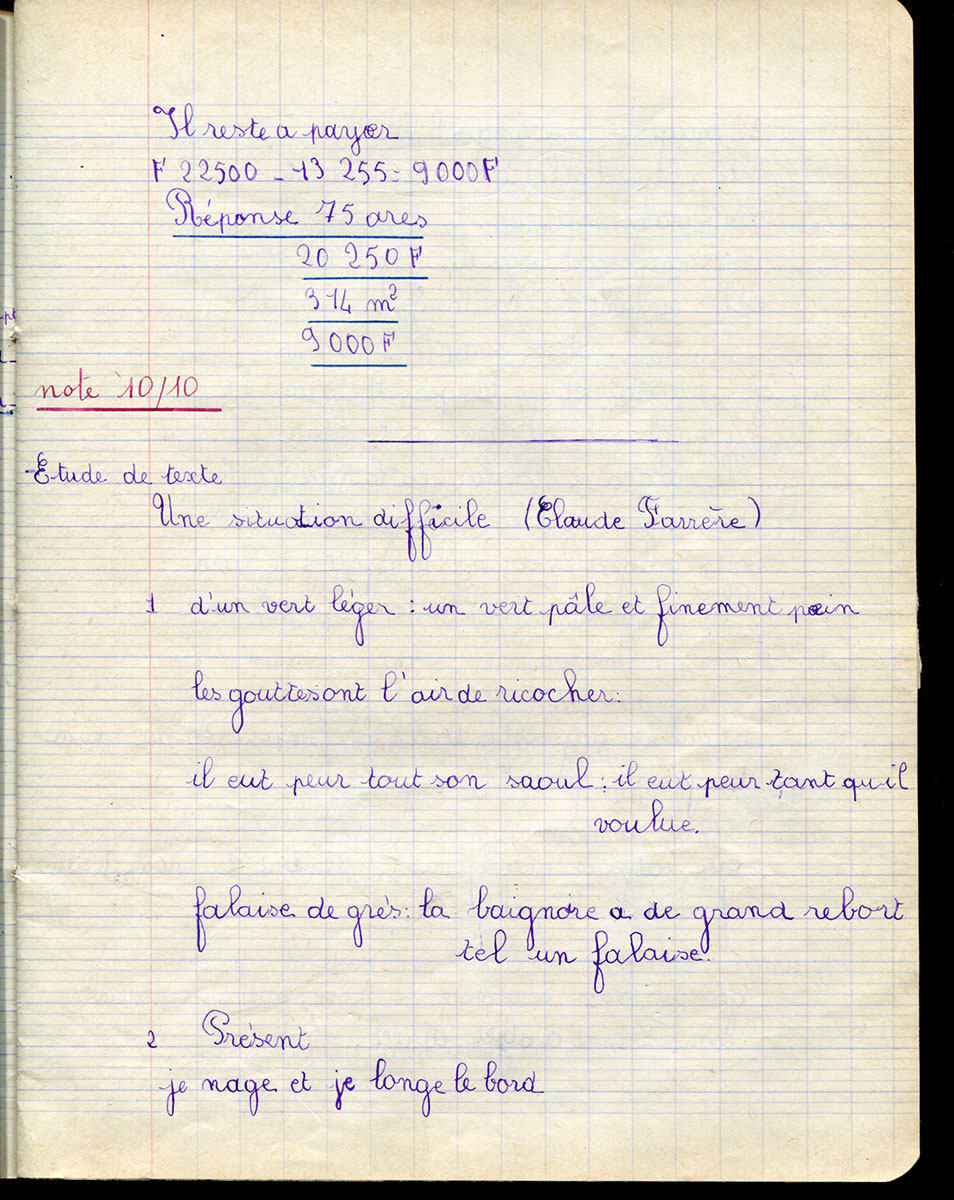 Il reste a payer
F 22500 - 13 255 = 9000 F
Réponse 75 ares
20 250 F
314 m²
9 000 F
note 10/10
Etude de texte
Une situation difficile (Claude Farrère)
1 d'un vert léger : un vert pâle et finement pein
les gouttes ont l'air de ricocher:
il eut peur tout son saoul : il eut peur tant qu'il
voulue.
falaise de grès: la baignore a de grand rebort
tel un falaise.
2 Présent
je nage et je longe le bord